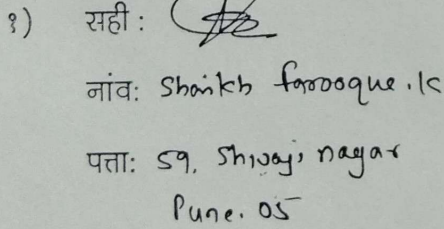 १) सही :
नांव: Shaikh farooque. K
पत्ता: 59, Shivaji nagar
Pune. 05